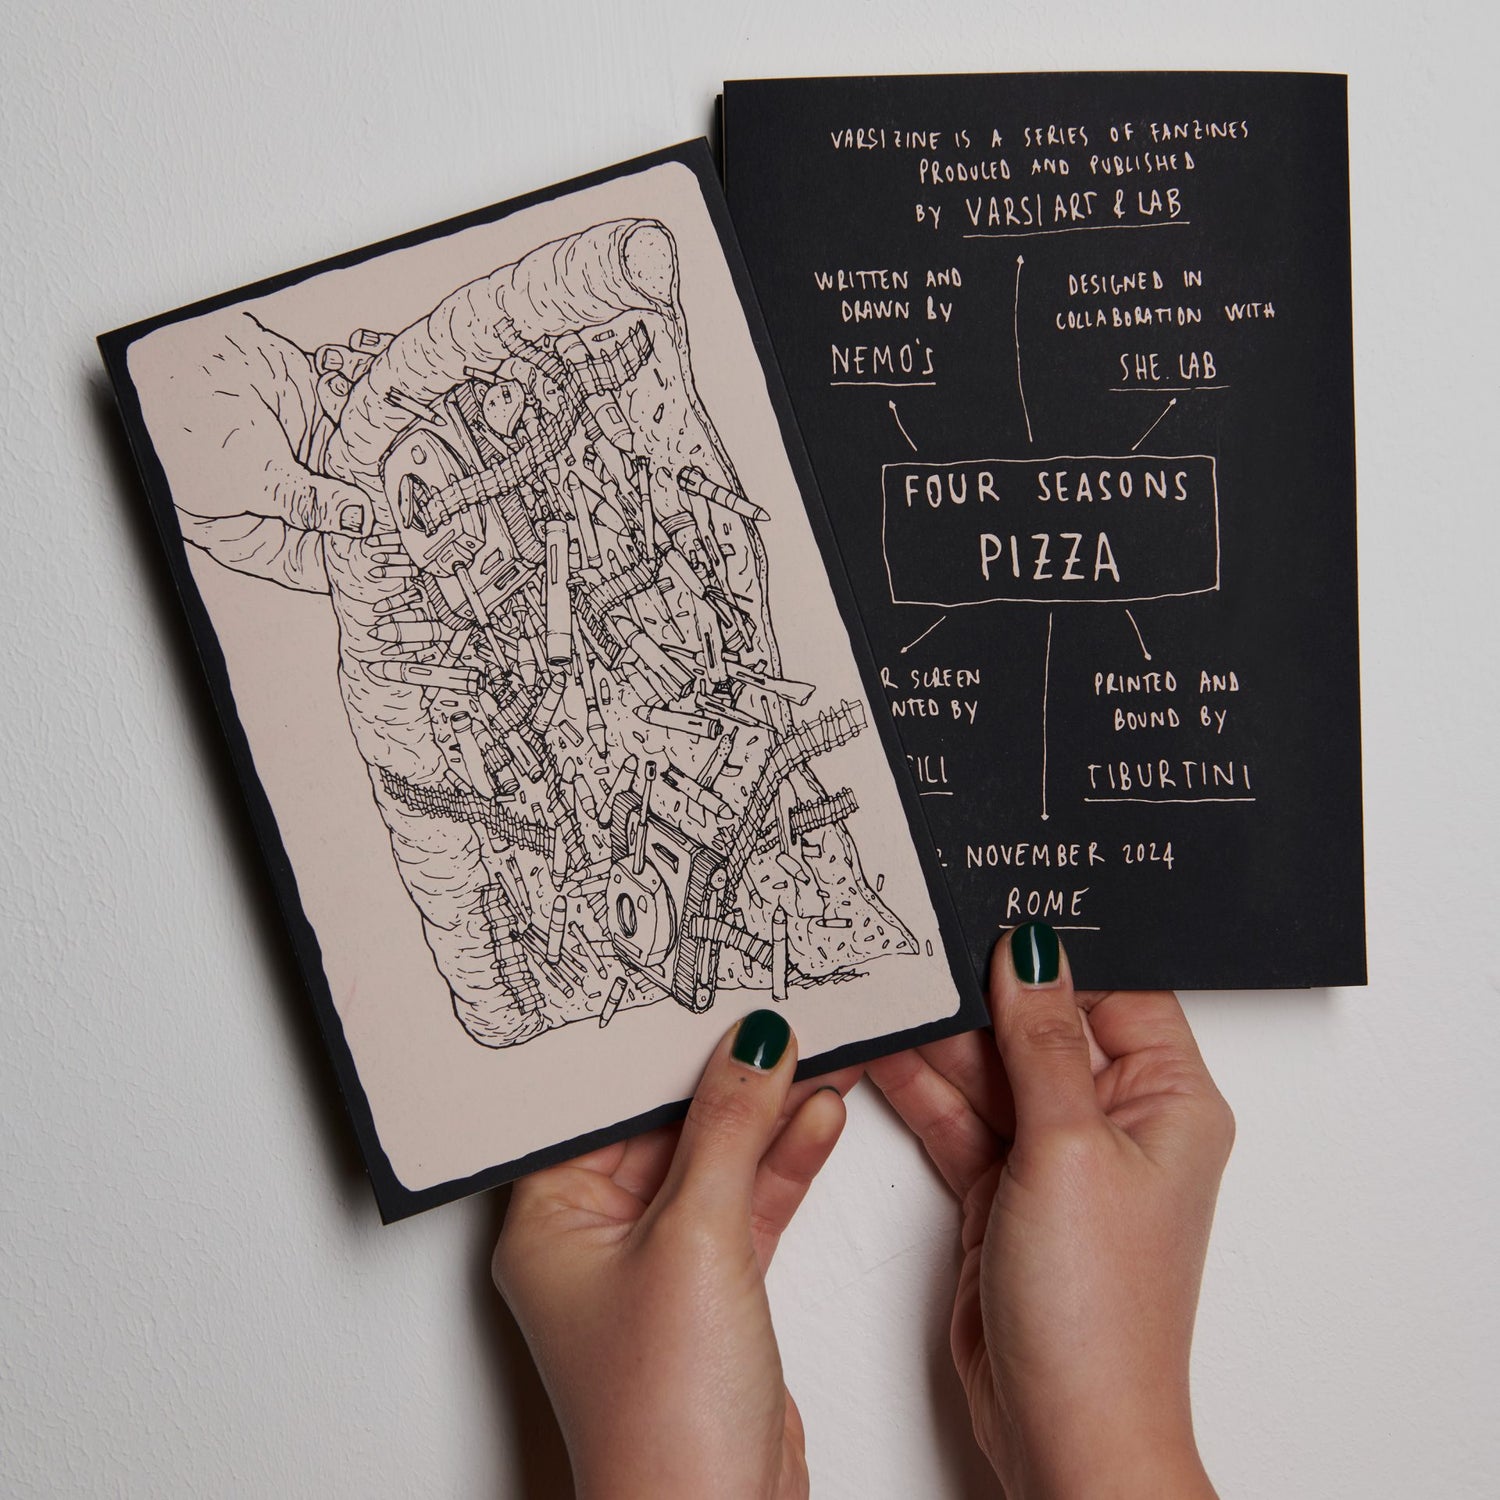 VARSIZINE IS A SERIES OF FANZINES
PRODUCED AND PUBLISHED
BY VARSI ART & LAB
WRITTEN AND
DRAWN BY
NEMO'S
DESIGNED IN
COLLABORATION WITH
SHE. LAB
FOUR SEASONS
PIZZA
SCREEN
BY
PRINTED AND
BOUND BY
TIBURTINI
NOVEMBER 2024
ROME